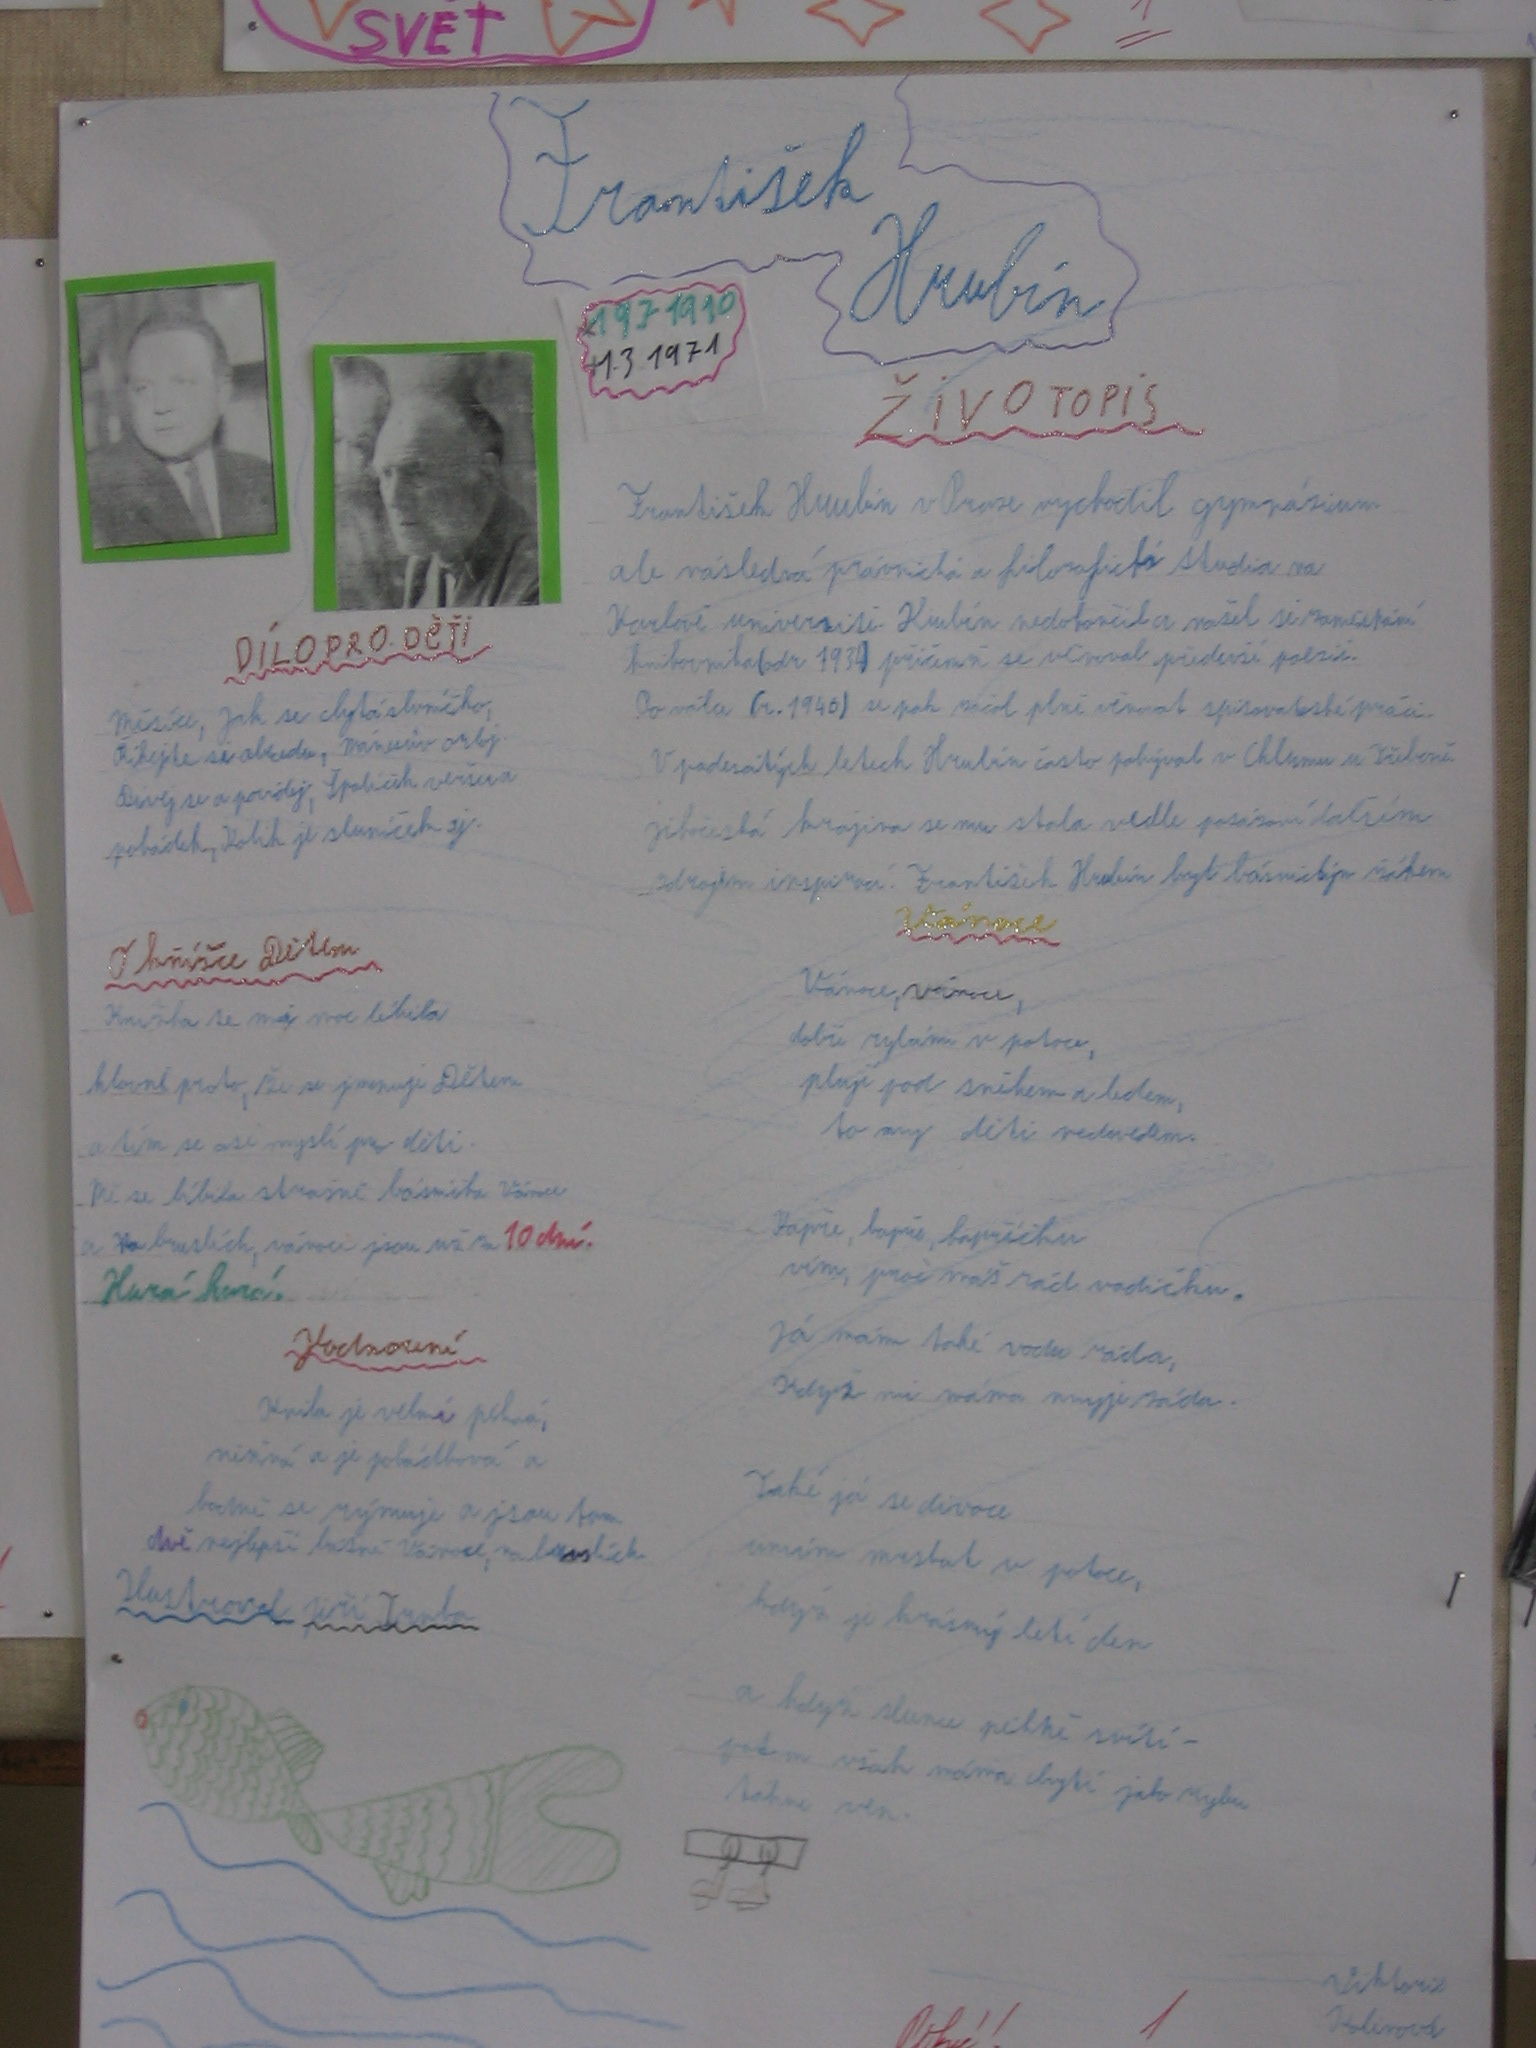 SVĚT
František
Hrubín
1.3.1971
ŽIVOTOPIS
František Hrubín v Praze vychodil gymnásium
ale následná právnická a filozofická studia na
Karlově universitě Hrubín nedokončil a našel si zaměstnání
knihovníka (od r 1934) přičemž se věnoval poezii.
Po válce (r. 1946) se pak začal plně věnovat spisovatelské práci.
V padesátých letech Hrubín často pobýval v Chlumu u Třeboně
jihočeská krajina se mu stala vedle posázaví dalším
zdrojem inspirací. František Hrubín byl básnickým
DÍLO PRO DĚTI
Měsíce, Jak se chytá sluníčko,
Říkejte si abecedu, Mánesův orloj.
Dívej se a povídej, Špalíček veršů a
pohádek, Kolik je sluníček aj.
O knížce Dětem
Knížka se moc líbila
hlavně proto, že se jmenuje Dětem
a tím se asi myslí pro děti.
Mě se líbila strašně básnička Vánoce
a Na bruslích, vánoce jsou už za 10 dní.
Hurá hurá.
Hodnocení
Kniha je velmi pěkná,
něžná a je pohádková a
hodně se rýmuje a jsou tam
dvě nejlepší básně Vánoce, na bruslích
Ilustroval Jiří Trnka
Vánoce
Vánoce, vánoce,
dobře rybám v potoce,
plují pod sněhem a ledem,
to my děti nedovedem.
Kapře, kapře, kapříčku
vím, proč máš rád vodičku.
Já mám také vodu ráda,
Když mi máma myje záda.
Také já se divoce
umím mrskat v potoce,
když je krásný letí den
a když slunce pěkně svítí -
potom však máma chytí jako rybu
táhne ven.
1
Viktorie